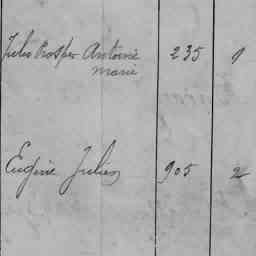 Jules Prosper Antoine 235 1
Marie
Eugène Julien 905 2